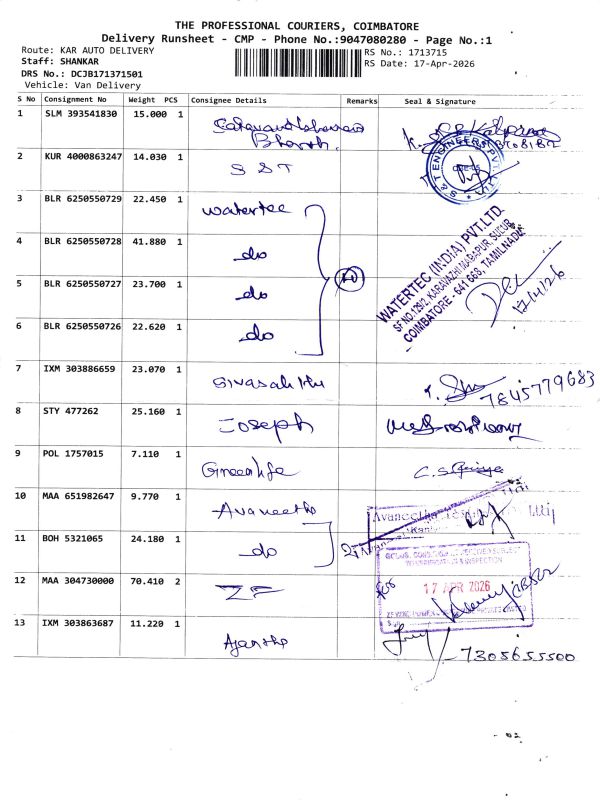 THE PROFESSIONAL COURIERS, COIMBATORE
Delivery Runsheet - CMP - Phone No.:9047080280 - Page No.:1
Route: KAR AUTO DELIVERY
RS No.: 1713715
Staff: SHANKAR
RS Date: 17-Apr-2026
DRS No.: DCJB171371501
Vehicle: Van Delivery
S No Consignment No Weight PCS Consignee Details Remarks Seal & Signature
1 SLM 393541830 15.000 1
Bharath.
2 KUR 4000863247 14.030 1 S S T
S & T ENGINEERS PVT. LTD
3 BLR 6250550729 22.450 1 Watertec
4 BLR 6250550728 41.880 1 do
5 BLR 6250550727 23.700 1 do
6 BLR 6250550726 22.620 1 do
WATERTEC (INDIA) PVT.LTD.
SF NO.129/2, KARAVAZHI MADAPUR, SULUR
COIMBATORE - 641 668, TAMILNADU
17/4/26
7 IXM 303886659 23.070 1 Sivasakthi 7845779683
8 STY 477262 25.160 1 Joseph
9 POL 1757015 7.110 1 Greenlife
10 MAA 651982647 9.770 1 Avaneetha
11 BOH 5321065 24.180 1 do
12 MAA 304730000 70.410 2 ZF
17 APR 2026
13 IXM 303863687 11.220 1 Ajantha
7305655500